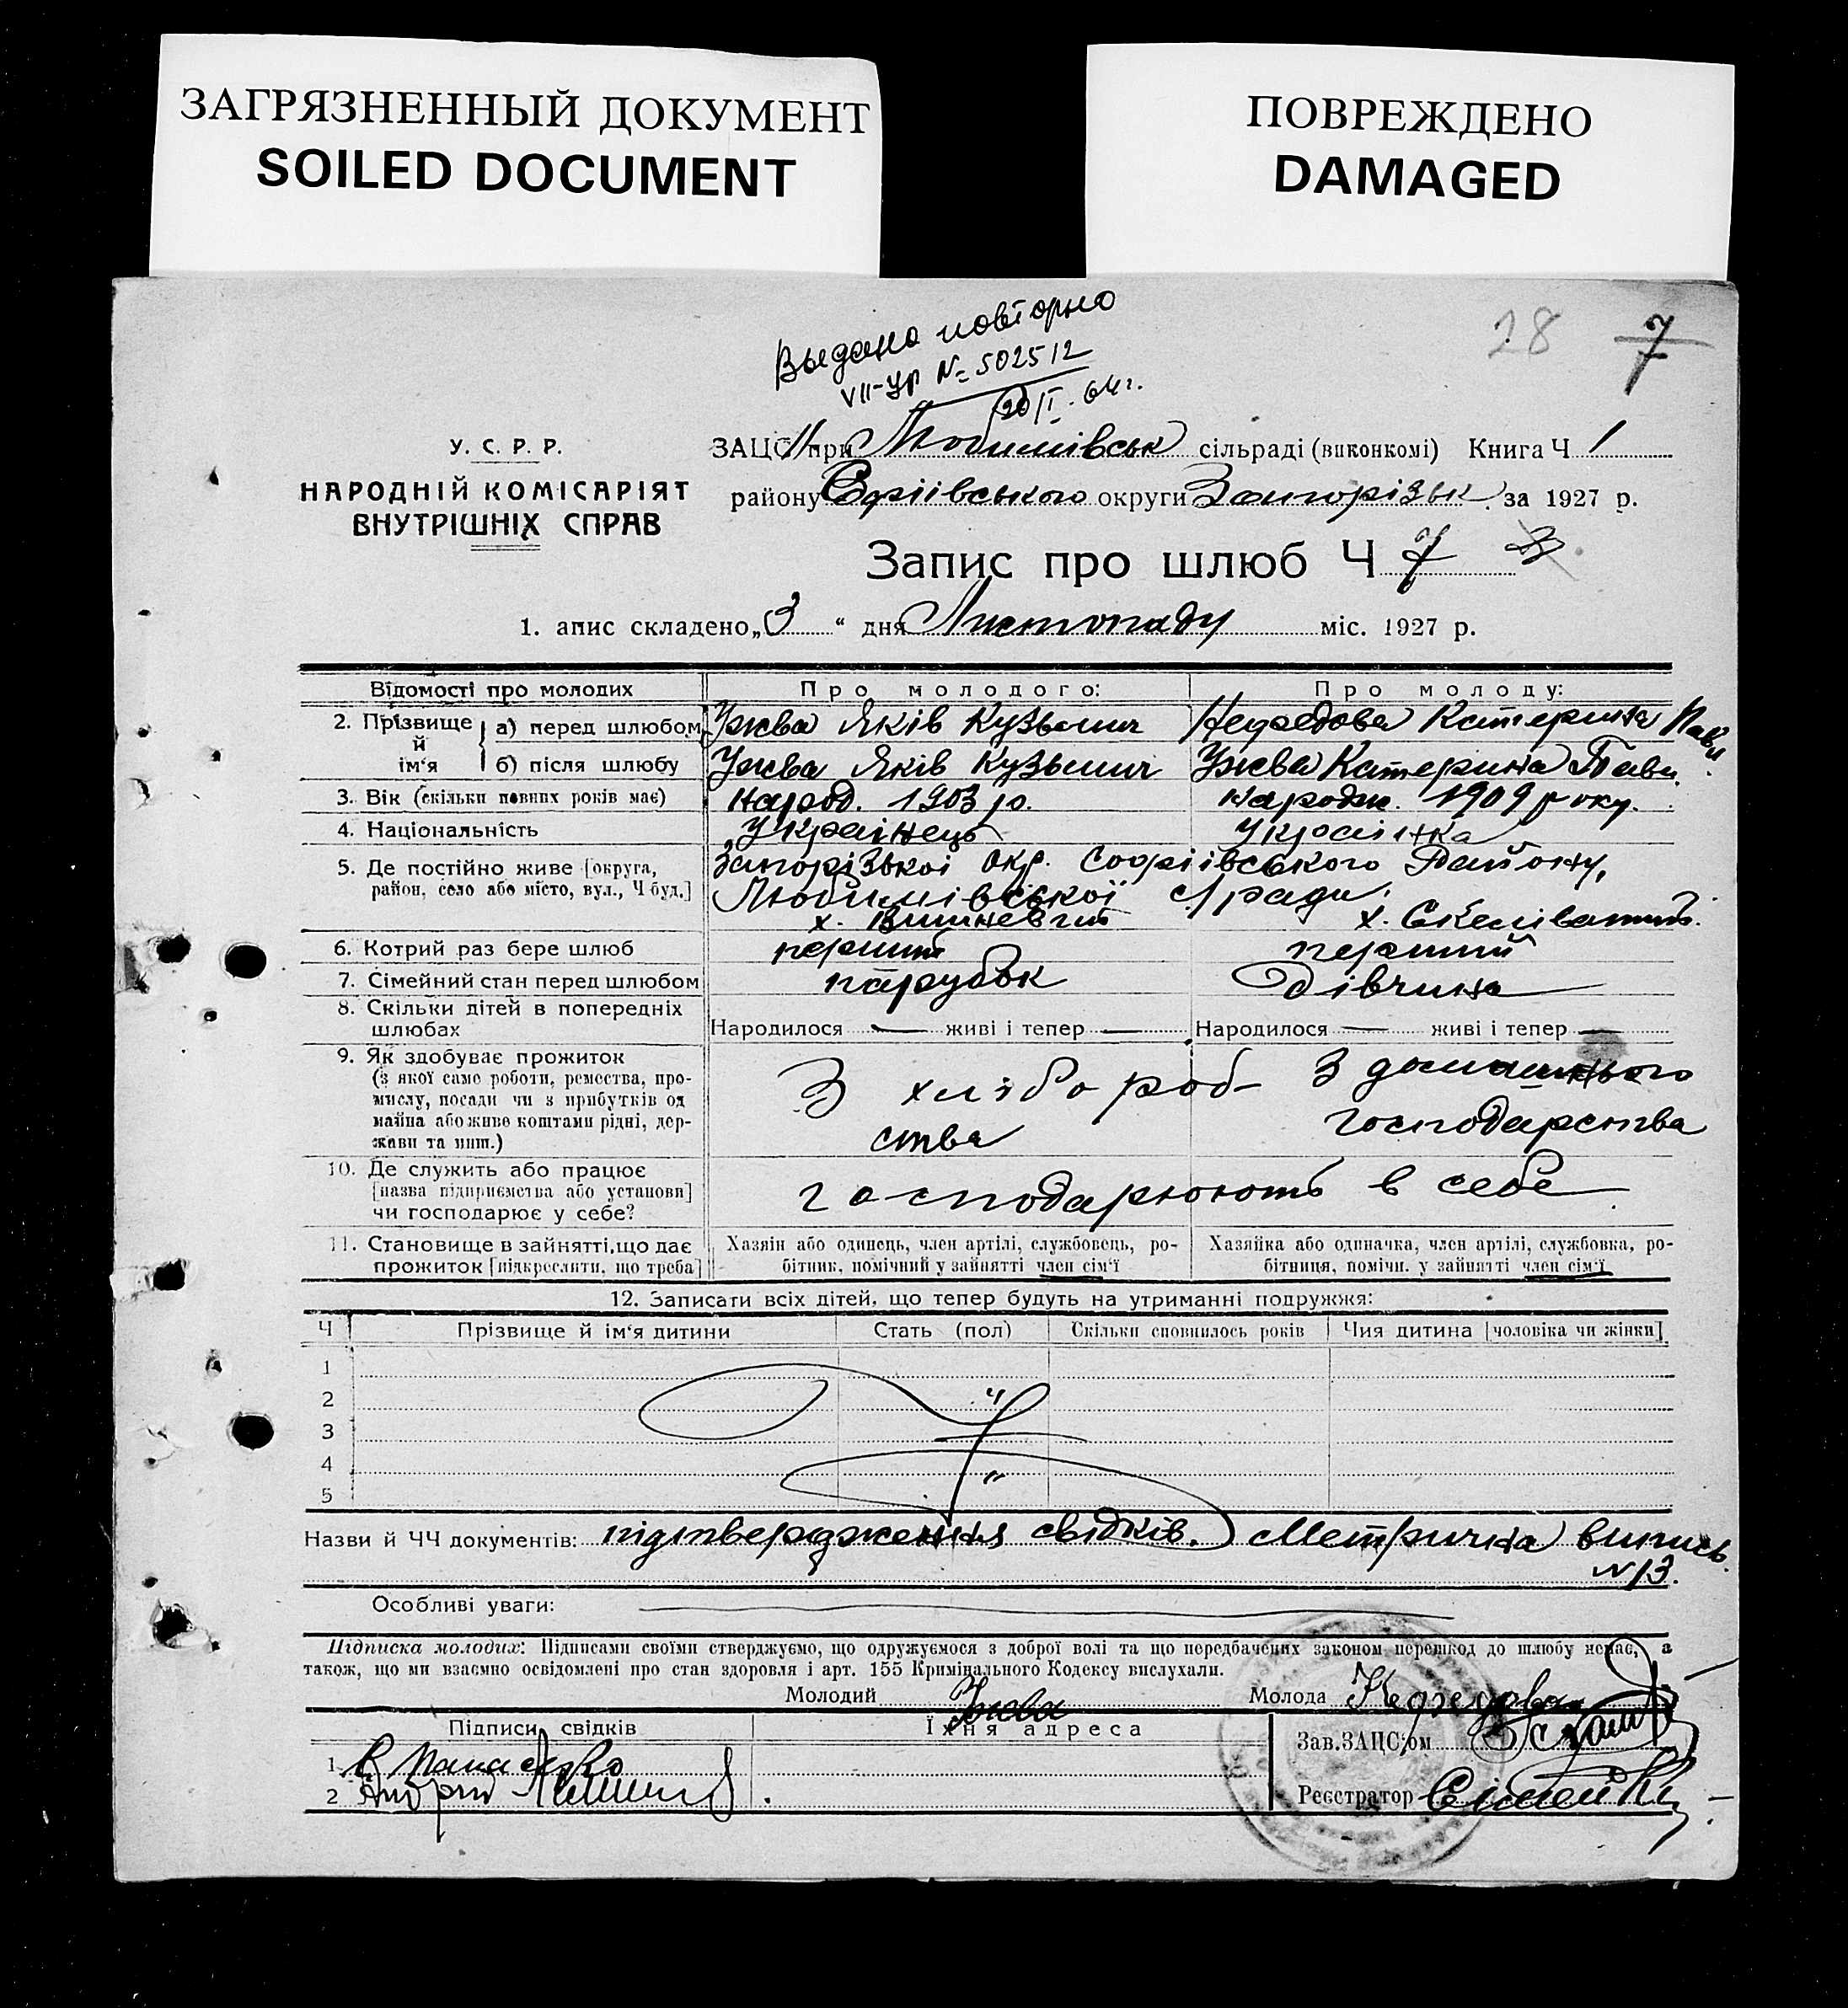 ЗАГРЯЗНЕННЫЙ ДОКУМЕНТ
SOILED DOCUMENT
ПОВРЕЖДЕНО
DAMAGED
Выдано повторно
VII-УР № 502512
20/I. 64 г.
28 7
У. С. Р. Р.
НАРОДНІЙ КОМІСАРІЯТ
ВНУТРІШНІХ СПРАВ
ЗАЦС при Любимівськ сільраді (виконкомі) Книга Ч 1
району Софіівського округи Запорізьк. за 1927 р.
Запис про шлюб Ч 7
1. апис складено „3“ дня Листопаду міс. 1927 р.
Відомості про молодих Про молодого: Про молоду:
2. Прізвище й ім‘я
а) перед шлюбом Ужва Яків Кузьмич Нефедова Катерина Павл.
б) після шлюбу Ужва Яків Кузьмич Ужва Катерина Павл.
3. Вік (скільки повних років має) народ. 1903 р. народж. 1909 року.
4. Національність Українець Українка
5. Де постійно живе [округа, Запорізькоі окр. Софіівського Району,
район, село або місто, вул., Ч буд.] Любимівської с/ради.
х. Вишневий х. Скелюватий.
6. Котрий раз бере шлюб перший перший
7. Сімейний стан перед шлюбом парубок дівчина
8. Скільки дітей в попередніх
шлюбах Народилося — живі і тепер — Народилося — живі і тепер —
9. Як здобуває прожиток
(з якої саме роботи, ремества, про-
мислу, посади чи з прибутків од
майна або живе коштами рідні, дер-
жави та инш.)
З хлібороб-
ства
З домашнього
господарства
10. Де служить або працює
[назва підприємства або установи]
чи господарює у себе?
господарюють в себе
11. Становище в зайнятті, що дає
прожиток [підкреслити, що треба]
Хазяін або одинець, член артілі, службовець, ро-
бітник, помічний у зайнятті член сім‘ї
Хазяйка або одиначка, член артілі, службовка, ро-
бітниця, помічн. у зайнятті член сім‘ї
12. Записати всіх дітей, що тепер будуть на утриманні подружжя:
Ч Прізвище й ім‘я дитини Стать (пол) Скільки сповнилось років Чия дитина [чоловіка чи жінки]
1
2
3
4
5
Назви й ЧЧ документів: підтвердження свідків. Метрична випись
№ 13.
Особливі уваги:
Підписка молодих: Підписами своїми стверджуємо, що одружуємося з доброї волі та що передбачених законом перешкод до шлюбу немає, а
також, що ми взаємно освідомлені про стан здоровля і арт. 155 Кримінального Кодексу вислухали.
Молодий Ужва Молода Нефедова
Підписи свідків Їхня адреса
Зав.ЗАЦС‘ом
1
2 Андрій
Реєстратор